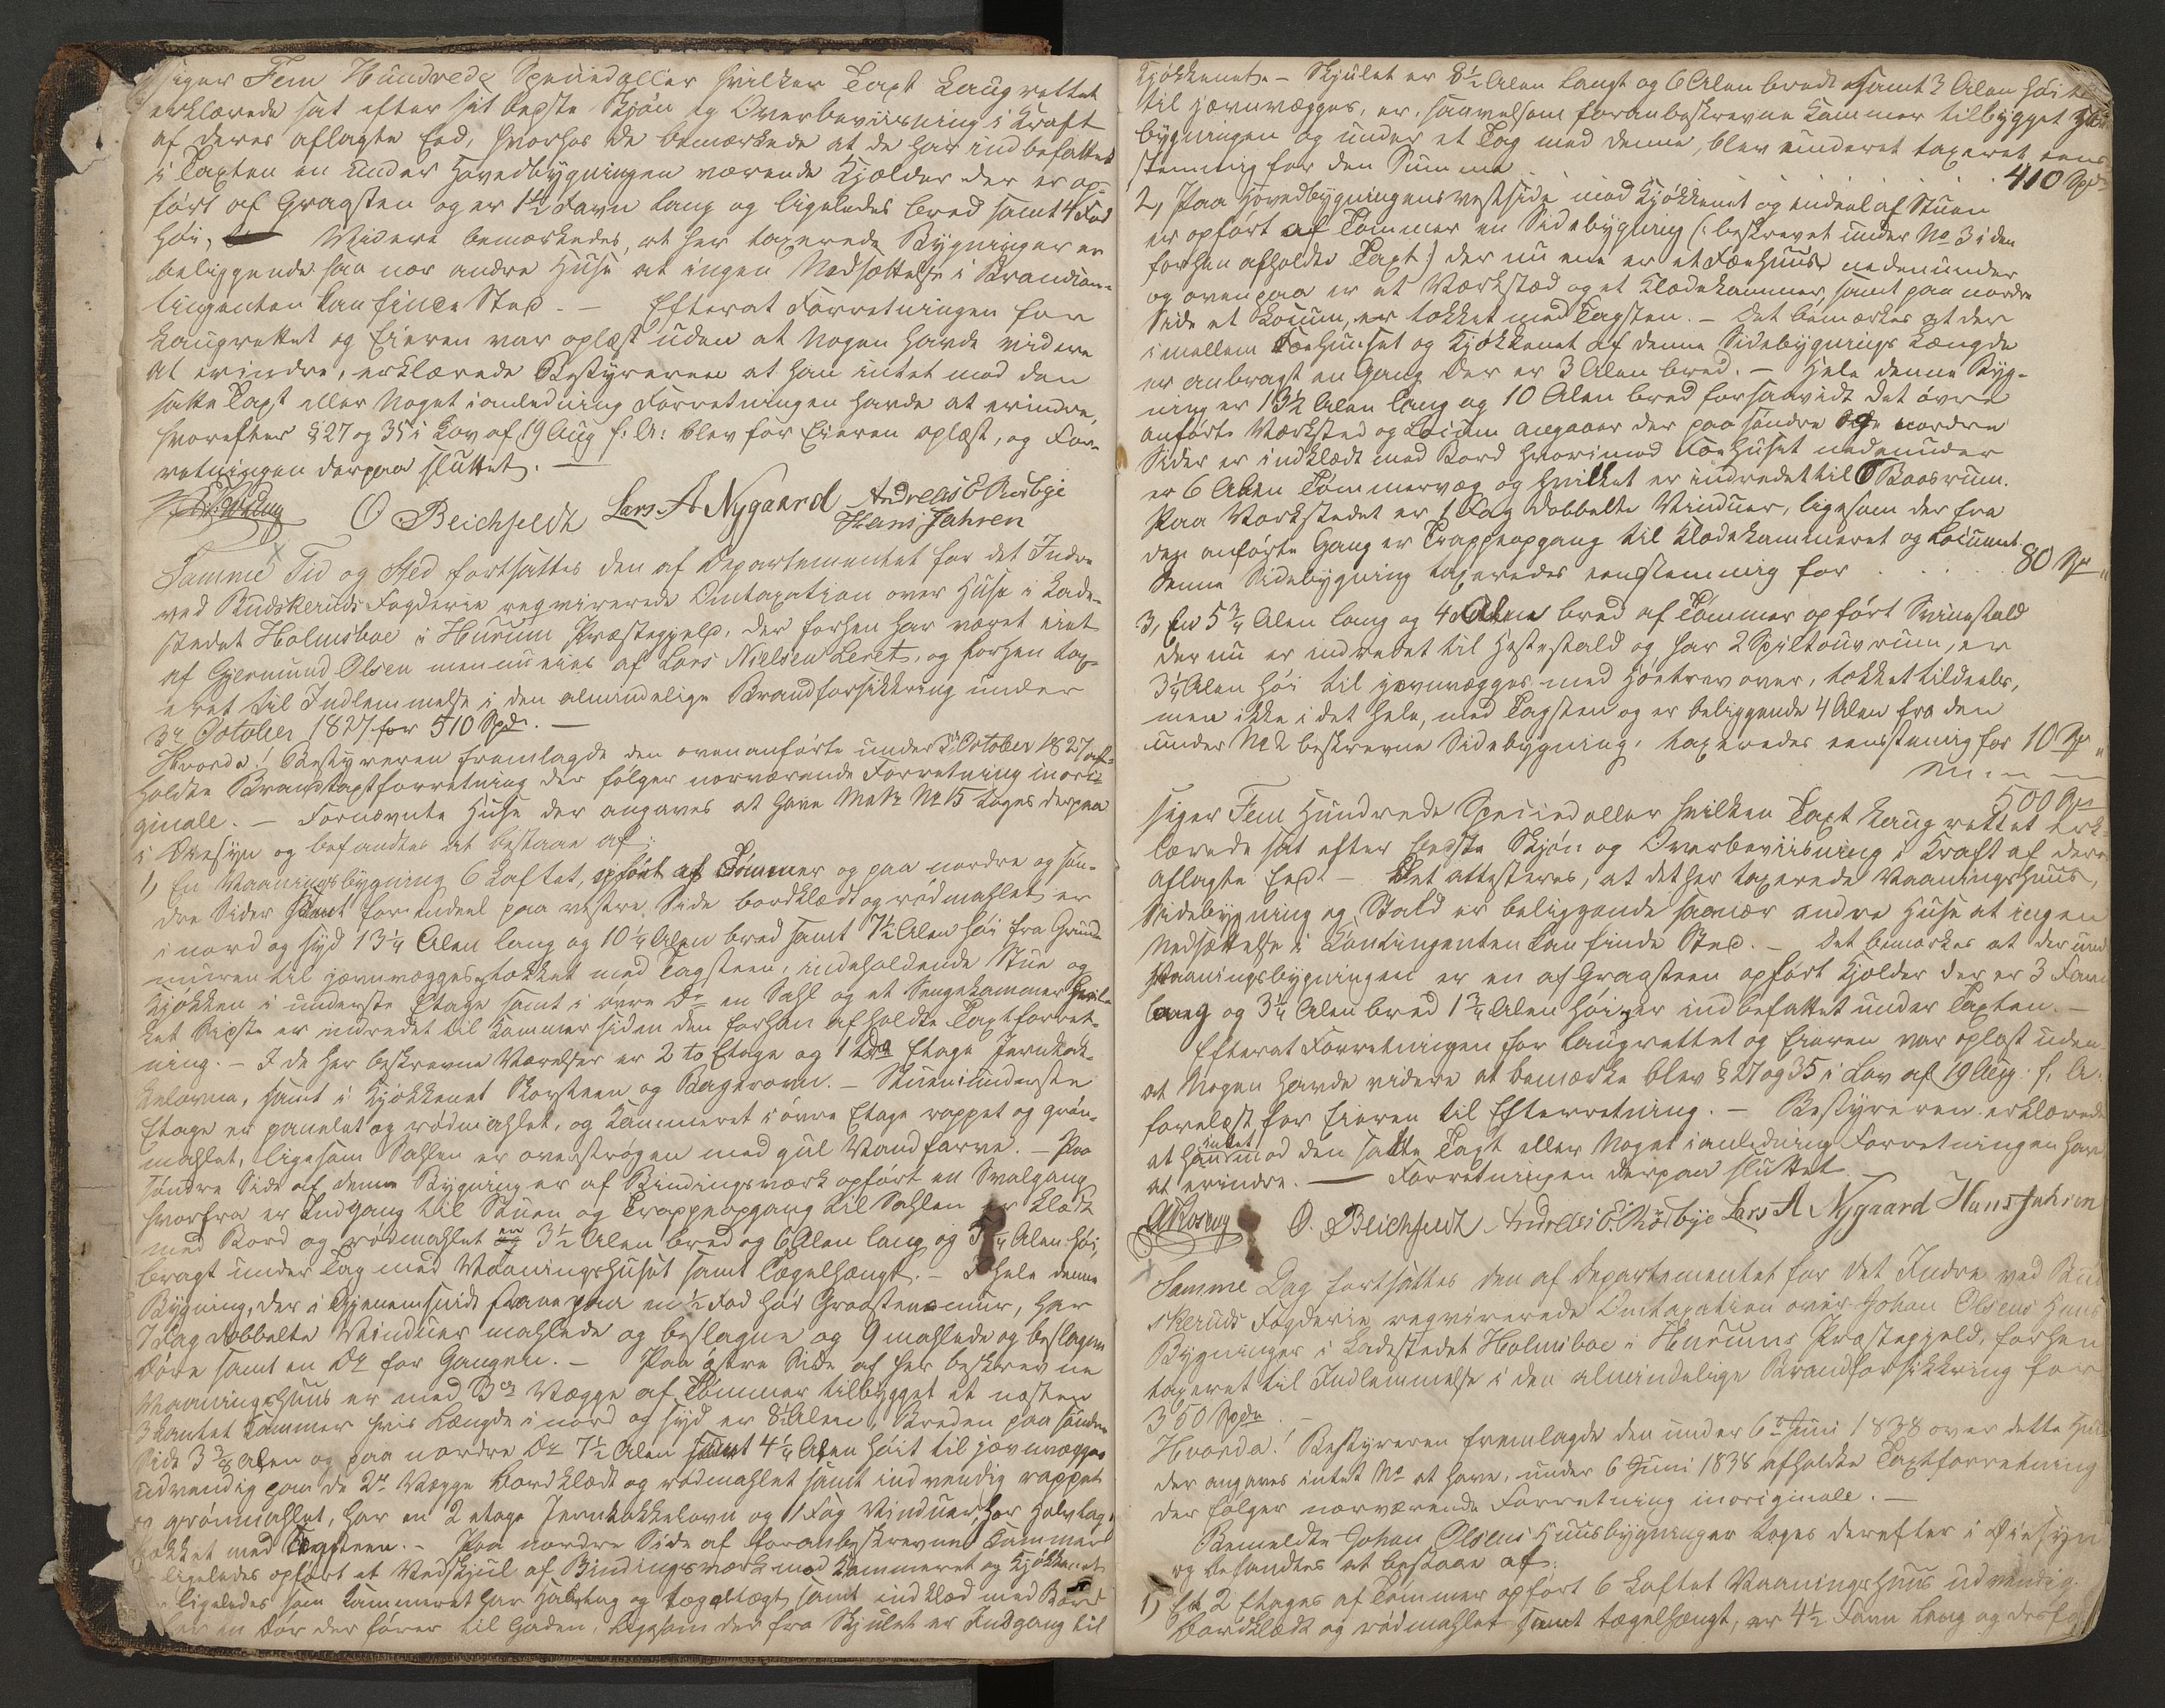 siger Fem Hundrede Speciedaller hvilken Taxt Laugrettet
erklærede sat efter sit bedste Skjøn og Overbeviisning i Kraft
af deres aflagte Eed, hvorhos de bemærkede at de har indbefattet
i Taxten en under Hovedbygningen værende Kjælder der er op-
ført af Graasten og er 1½ Favn lang og ligeledes bred samt 4 Fod
høi, Videre bemærkedes, at her taxerede Bygninger er
beliggende saa nær andre Huse at ingen Nedsættelse i Brandcon-
tingenten kan finde Sted. - Efterat Forretningen for
Laugrettet og Eieren var oplæst uden at Nogen havde videre
at erindre, erklærede Bestyreren at han intet mod den
satte Taxt eller Noget i anledning Forretningen havde at erindre,
hvorefter § 27 og 35 i Lov af 19 Aug f. A: blev for Eieren oplæst, og For-
retningen derpaa sluttet. -
O Beichfeldt Lars A Nygaard Andreas E Rødbye
Hans Jahren
Samme Tid og Sted fortsattes den af Departementet for det Indre
ved Budskeruds Fogderie reqvirerede Omtaxation over Huse i Lade-
stedet Holmsboe i Hurum Præstegjeld, der forhen har været eiet
af Gjermund Olsen men nu eies af Lars Nielsen Leret, og forhen tax-
eret til Indlemmelse i den almindelige Brandforsikkring under
3de October 1827 for 510 Spdr. -
Hvorda! Bestyreren fremlagde den ovenanførte under 3 October 1827 af-
holdte Brandtaxtforretning der følger nærværende Forretning in ori-
ginale. - Fornævnte Huse der angaves at have Matr No 15 toges derpaa
i Øiesyn og befandtes at bestaae af:
1, En Vaaningsbygning 6 Laftet, opført af Tømmer og paa nordre og søn-
dre Sider samt for endeel paa vestre Side bordklædt og rødmahlet er
i nord og syd 13¼ Alen lang og 10¼ Alen bred samt 7½ Alen høi fra Grund-
muren til jævnvægges, tækket med Tagsteen, indeholdende Stue og
Kjøkken i underste Etage samt i øvre Do en Sahl og et Sengekammer hvil-
ket Sidste er indredet til Kammer siden den forhen afholdte Taxtforret-
ning. - I de her beskrevne Værelser er 2 to Etage og 1 Etage Jernkak-
kelovne, samt i Kjøkkenet Skorsteen og Bagerovn. - Stuen i underste
Etage er panelet og rødmahlet, og Kammeret i øvre Etage rappet og grøn-
mahlet, ligesom Sahlen er overstrøgen med guul Vandfarve. - Paa
søndre Side af denne Bygning er af Bindingsværk opført en Svalgang
hvorfra er Indgang til Stuen og Trappeopgang til Sahlen er klædt
med Bord og rødmahlet er 3½ Alen bred og 6 Alen lang og Alen høi,
bragt under Tag med Vaaningshuset samt Tægelhængt. - I hele denne
Bygning, der i Gjenemsnidt staae paa en ½ Fod høi Graasteensmur, har
7 Fag dobbelte Vinduer mahlede og beslagne og 9 mahlede og beslagne
Døre samt en Do for Gangen. - Paa østre Side af her beskrevne
Vaaningshuus er med 3de Vægge af Tømmer tilbygget et næsten
3kantet Kammer hvis Længde i nord og syd er 8½ Alen, Breden paa søndre
Side 3¾ Alen og paa nordre Do 7½ Alen samt 4¼ Alen høit til jævnvægges
udvendig paa de 2de Vægge bordklædt og rødmahlet samt indvendig rappet
og grønmahlet, har en 2 etage Jernkakkelovn og 1 Fag Vinduer, har Halvtag,
tækket med Tagsteen. - Paa nordre Side af foranbeskrevne Kammer
ligeledes opført et Vedskjul af Bindingsværk mod Kammeret og Kjøkkenet
ligeledes som Kammeret har Halvtag og tægeltægt, samt indklæd med Bord
en Dør der fører til Gaden, ligesom der fra Skjulet er Indgang til
Kjøkkenet. - Skjulet er 8½ Alen langt og 6 Alen bredt samt 3 Alen høit
til jævnvægges, er, saavelsom foranbeskrevne Kammer tilbygget
bygningen og under et Tag med denne, blev underet taxeret eens-
stemmig for den Summa . . . 410 Spd
2, Paa Hovedbygningens vestside mod Kjøkkenet og endeel af Stuen
er opført af Tømmer en Sidebygning (: beskrevet under No 3 i den
forhen afholdte Taxt:) der nu ene er et Fæehuus nedenunder
og ovenpaa er et Værksted og et Klædekammer, samt paa nordre
Side et Locum, er tækket med Tagsten. - Det bemærkes at der
imellem Fæehuuset og Kjøkkenet af denne Sidebygnings Længde
er anbragt en Gang der er 3 Alen bred. - Hele denne Byg-
ning er 13½ Alen lang og 10 Alen bred forsaavidt det øvre
anførte Værksted og Locum angaaer der paa søndre og nordre
Sider er indklædt med Bord hvorimod Fæehuset nedenunder
er 6 Alen Tømmervæg og hvilket er indredet til 6 Baasrum.
Paa Værkstedet er 1 Fag dobbelte Vinduer, ligesom der fra
den anførte Gang er Trappeopgang til Klædekammeret og Locumet.
Denne Sidebygning taxeredes eenstemmig for . . . 80 Sp „
3, En 5¾ Alen lang og 4 Alen bred af Tømmer opført Sviinestald
der nu er indredet til Hestestald og har 2 Spiltouvrum, er
3¼ Alen høi til jævnvægges med Høetrev over, tækket tildeels,
men ikke i det hele, med Tagsten og er beliggende 4 Alen fra den
under No 2 beskrevne Sidebygning, taxeredes eenstemig for 10 Sp „
500 Sp
siger Fem Hundrede Speciedaller hvilken Taxt Laugrettet erk-
lærede sat efter bedste Skjøn og Overbeviisning i Kraft af deres
aflagte Eed. - Det attesteres, at det her taxerede Vaaningshuus,
Sidebygning og Stald er beliggende saa nær andre Huse at ingen
Nedsættelse i Contingenten kan finde Sted. - Det bemærkes at der und
Vaaningsbygningen er en af Graasteen opført Kjælder der er 3 Favn
lang og 3¼ Alen bred 1¾ Alen høi, er indbefattet under Taxten. -
Efterat Forretningen for Laugrettet og Eieren var oplæst uden
at Nogen havde videre at bemærke blev § 27 og 35 i Lov af 19 Aug: f. A:
forelæst for Eieren til Efterretning. - Bestyreren erklærede
at han intet mod den satte Taxt eller Noget i anledning Forretningen hav
at erindre. - Forretningen derpaa sluttet -
O. Beichfeldt Andreas E. Rødbye Lars A Nygaard Hans Jahren
Samme Dag fortsattes den af Departementet for det Indre ved Bud-
skeruds Fogderie reqvirerede Omtaxation over Johan Olsens Huus
Bygninger i Ladestedet Holmsboe i Hurums Præstegjeld, forhen
taxeret til Indlemmelse i den almindelige Brandforsikkring for
350 Spdr
Hvorda! Bestyreren fremlagde den under 6te Juni 1838 over dette Huus
der angaves intet No at have, under 6 Juni 1838 afholdte Taxtforretning
der følger nærværende Forretning in originale. -
Bemeldte Johan Olsens Huusbygninger toges derefter i Øiesyn
og befandtes at bestaae af:
1, Et 2 Etages af Tømmer opført 6 Laftet Vaaningshuus udvendig
bordklædt og rødmahlet samt tægelhængt, er 4½ Favn lang og